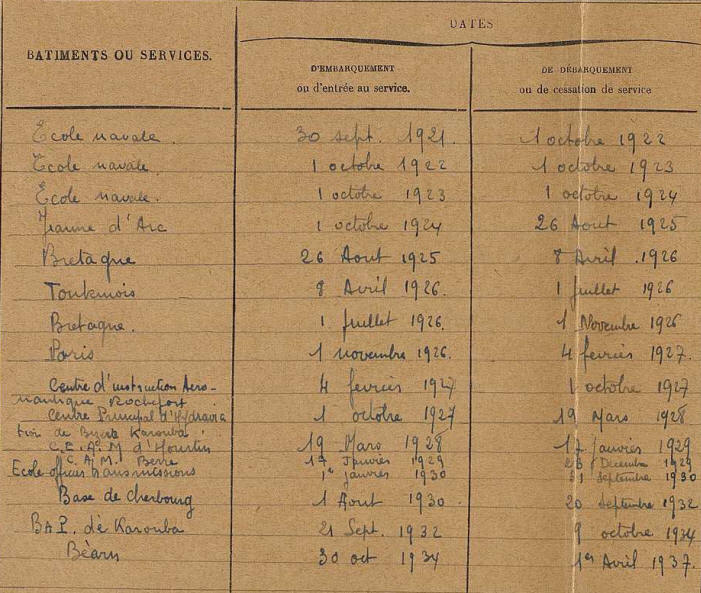 DATES
BATIMENTS OU SERVICES.
D'EMBARQUEMENT
ou d'entrée au service.
DE DÉBARQUEMENT
ou de cessation de service
Ecole navale. 30 sept. 1921. 1 octobre 1922
Ecole navale. 1 octobre 1922 1 octobre 1923
Ecole navale. 1 octobre 1923 1 octobre 1924
Jeanne d'Arc 1 octobre 1924 26 Aout 1925
Bretagne 26 Aout 1925 8 Avril .1926
Tonkinois 8 Avril 1926. 1 juillet 1926
Bretagne. 1 juillet 1926. 1 Novembre 1926
Paris 1 novembre 1926. 4 fevrier 1927.
Centre d'instruction Aero-
nautique Rochefort 4 fevrier 1927 1 octobre 1927
Centre Principal d'Hydravia
tion de Bizerte Karouba 1 octobre 1927 19 Mars 1928
C.E.A.M d'Hourtin 19 Mars 1928 17 janvier 1929
C.A.M. Berre 17 Janvier 1929 Decembre 1929
Ecole offices transmissions 1er janvier 1930 septembre 1930
Base de Cherbourg 1 Aout 1930. 20 septembre 1932
BAP. de Karouba 21 Sept. 1932 9 octobre 1934
Béarn 30 oct 1934 1er Avril 1937.